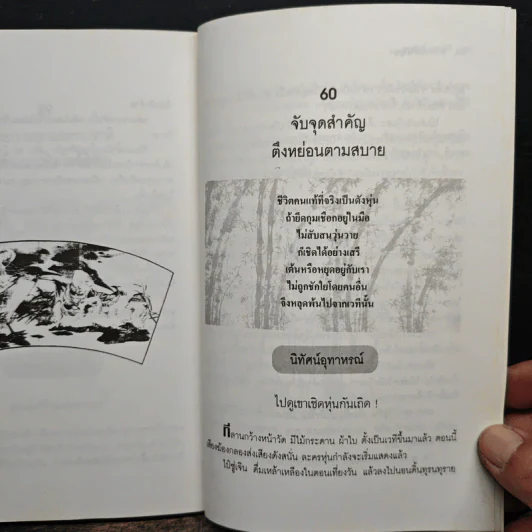 60
จับจุดสำคัญ
ตึงหย่อนตามสบาย
ชีวิตคนแท้ที่จริงเป็นดังหุ่น
ถ้ายึดกุมเชือกอยู่ในมือ
ไม่สับสนวุ่นวาย
ก็เชิดได้อย่างเสรี
เต้นหรือหยุดอยู่กับเรา
ไม่ถูกชักใยโดยคนอื่น
จึงหลุดพ้นไปจากเวทีนั้น
นิทัศน์อุทาหรณ์
ไปดูเขาเชิดหุ่นกันเถิด !
ที่ลานกว้างหน้าวัด มีไม้กระดาน ผ้าใบ ตั้งเป็นเวทีขึ้นมาแล้ว ตอนนี้
เสียงฆ้องกลองส่งเสียงดังสนั่น ละครหุ่นกำลังจะเริ่มแสดงแล้ว
ไป๋ซู่เจิน ดื่มเหล้าเหลืองในตอนเที่ยงวัน แล้วลงไปนอนดิ้นทุรนทุราย